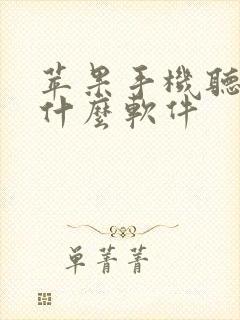 苹果手機聽
什麼軟件
单菁菁